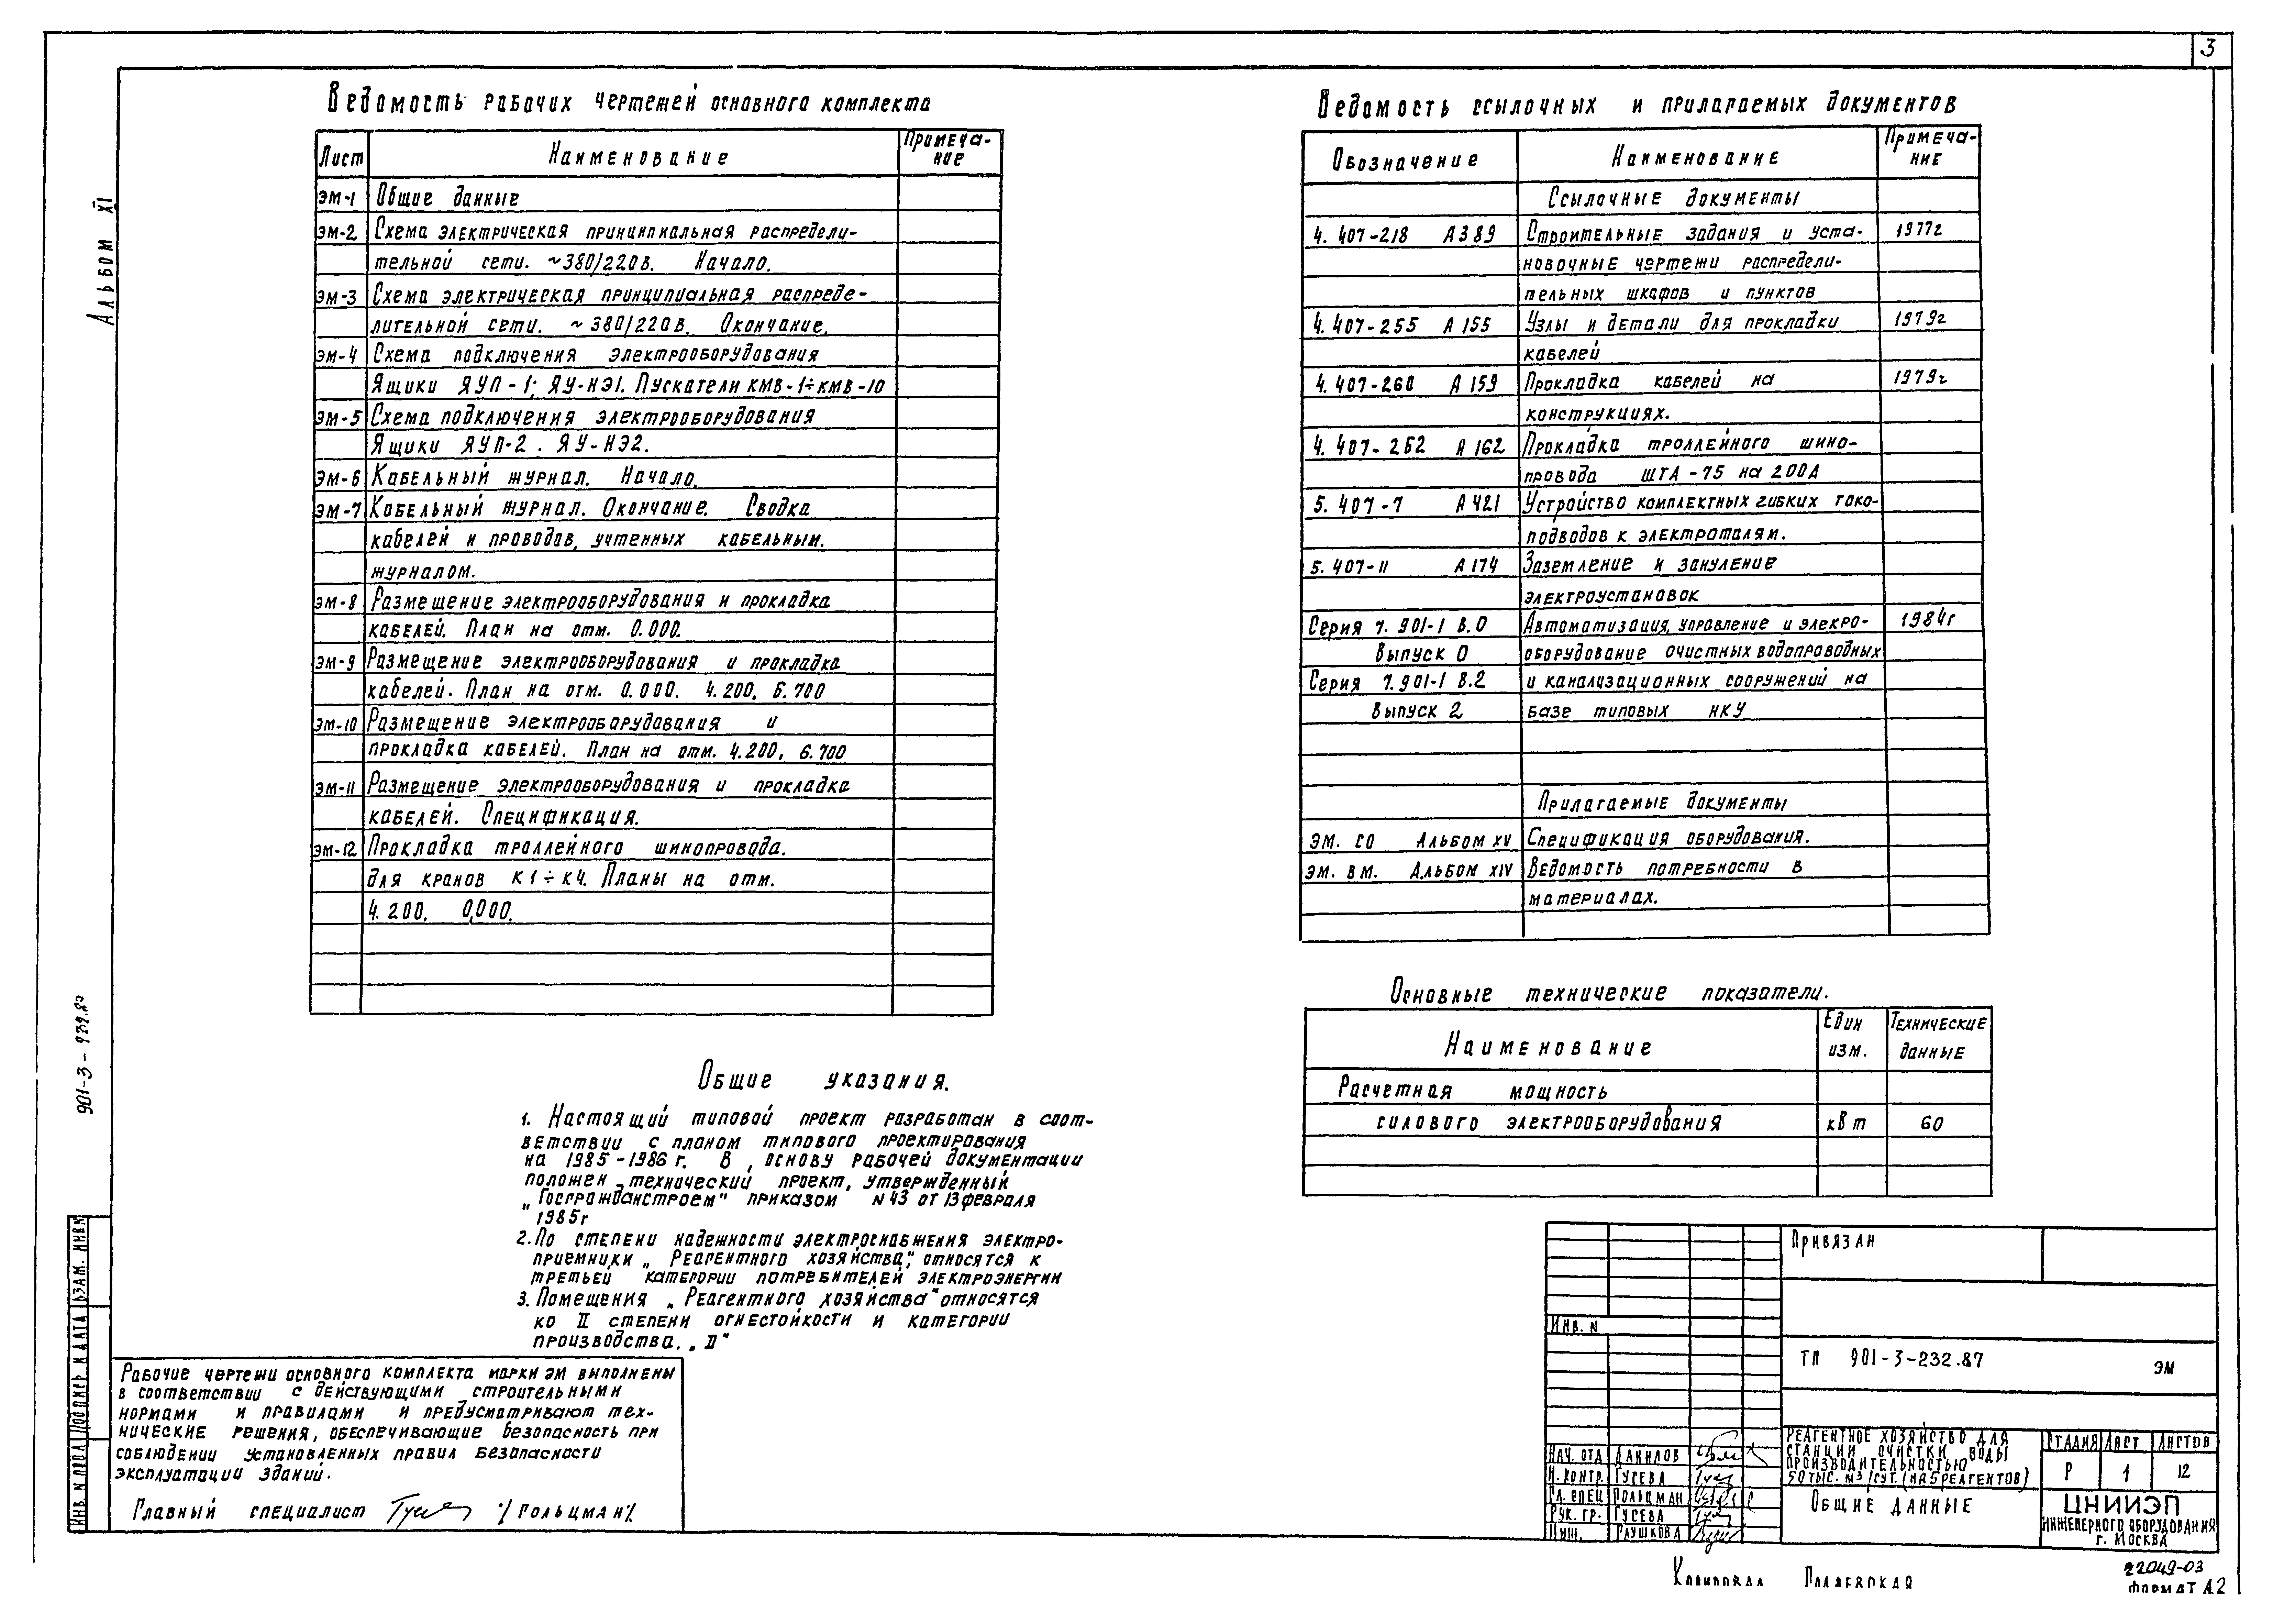 3
Альбом XI
901-3-232.87
Ведомость рабочих чертежей основного комплекта
Лист Наименование Примеча-
ние
ЭМ-1 Общие данные
ЭМ-2 Схема электрическая принципиальная распредели-
тельной сети. ~380/220в. Начало.
ЭМ-3 Схема электрическая принципиальная распреде-
лительной сети. ~380/220в. Окончание.
ЭМ-4 Схема подключения электрооборудования
Ящики ЯУП-1; ЯУ-НЭ1. Пускатели КМВ-1÷КМВ-10
ЭМ-5 Схема подключения электрооборудования
Ящики ЯУП-2. ЯУ-НЭ2.
ЭМ-6 Кабельный журнал. Начало.
ЭМ-7 Кабельный журнал. Окончание. Сводка
кабелей и проводов, учтенных кабельным.
журналом.
ЭМ-8 Размещение электрооборудования и прокладка
кабелей. План на отм. 0.000.
ЭМ-9 Размещение электрооборудования и прокладка
кабелей. План на отм. 0.000. 4.200, 6.700
ЭМ-10 Размещение электрооборудования и
прокладка кабелей. План на отм. 4.200, 6.700
ЭМ-11 Размещение электрооборудования и прокладка
кабелей. Спецификация.
ЭМ-12 Прокладка троллейного шинопровода.
для кранов К1÷К4. Планы на отм.
4.200. 0,000.
Ведомость ссылочных и прилагаемых документов
Обозначение Наименование Примеча-
ние
Ссылочные документы
4.407-218 А389 Строительные задания и уста- 1977г
новочные чертежи распредели-
тельных шкафов и пунктов
4.407-255 А155 Узлы и детали для прокладки 1979г
кабелей
4.407-260 А159 Прокладка кабелей на 1979г
конструкциях.
4.407-262 А162 Прокладка троллейного шино-
провода ШТА-75 на 200А
5.407-7 А421 Устройство комплектных гибких токо-
подводов к электроталям.
5.407-11 А174 Заземление и зануление
электроустановок
Серия 7.901-1 В.0 Автоматизация, управление и электро- 1984г
Выпуск 0 оборудование очистных водопроводных
Серия 7.901-1 В.2 и канализационных сооружений на
Выпуск 2 базе типовых НКУ
Прилагаемые документы
ЭМ. СО Альбом XV Спецификация оборудования.
ЭМ. ВМ. Альбом XIV Ведомость потребности в
материалах.
Основные технические показатели.
Наименование Един Технические
изм. данные
Расчетная мощность
силового электрооборудования кВт 60
Общие указания.
1. Настоящий типовой проект разработан в соот-
ветствии с планом типового проектирования
на 1985-1986 г. В основу рабочей документации
положен технический проект, утвержденный
„Госгражданстроем" приказом N43 от 13 февраля
1985г
2. По степени надежности электроснабжения электро-
приемники „Реагентного хозяйства," относятся к
третьей категории потребителей электроэнергии
3. Помещения „Реагентного хозяйства" относятся
ко II степени огнестойкости и категории
производства. „Д"
Рабочие чертежи основного комплекта марки ЭМ выполнены
в соответствии с действующими строительными
нормами и правилами и предусматривают тех-
нические решения, обеспечивающие безопасность при
соблюдении установленных правил безопасности
эксплуатации зданий.
Главный специалист /Гольцман/
Инв. N подл. Подпись и дата Взам. инв. N
Привязан
Инв. N
ТП 901-3-232.87 ЭМ
Нач. отд Данилов
Н. контр. Гусева
Гл. спец Гольцман
Рук. гр. Гусева
Инж. Глушкова
Реагентное хозяйство для
станции очистки воды
производительностью
50 тыс. м³/сут. (на 5 реагентов)
Стадия Лист Листов
Р 1 12
Общие данные
ЦНИИЭП
инженерного оборудования
г. Москва
Копировал
22049-03
Формат А2